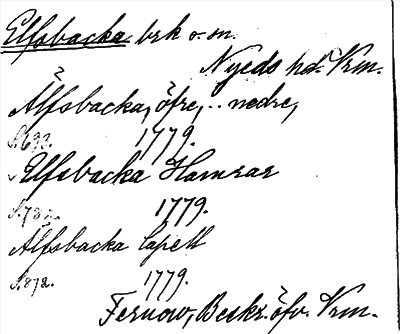 Elfsbacka brk o. sn.
Nyeds hd. Vrm.
Älfsbacka, öfre, .. nedre,
S. 692. 1779.
Elfsbacka Hamrar
S. 782. 1779.
Älfsbacka Capell
S. 872. 1779.
Fernow, Beskr. öfv. Vrm.